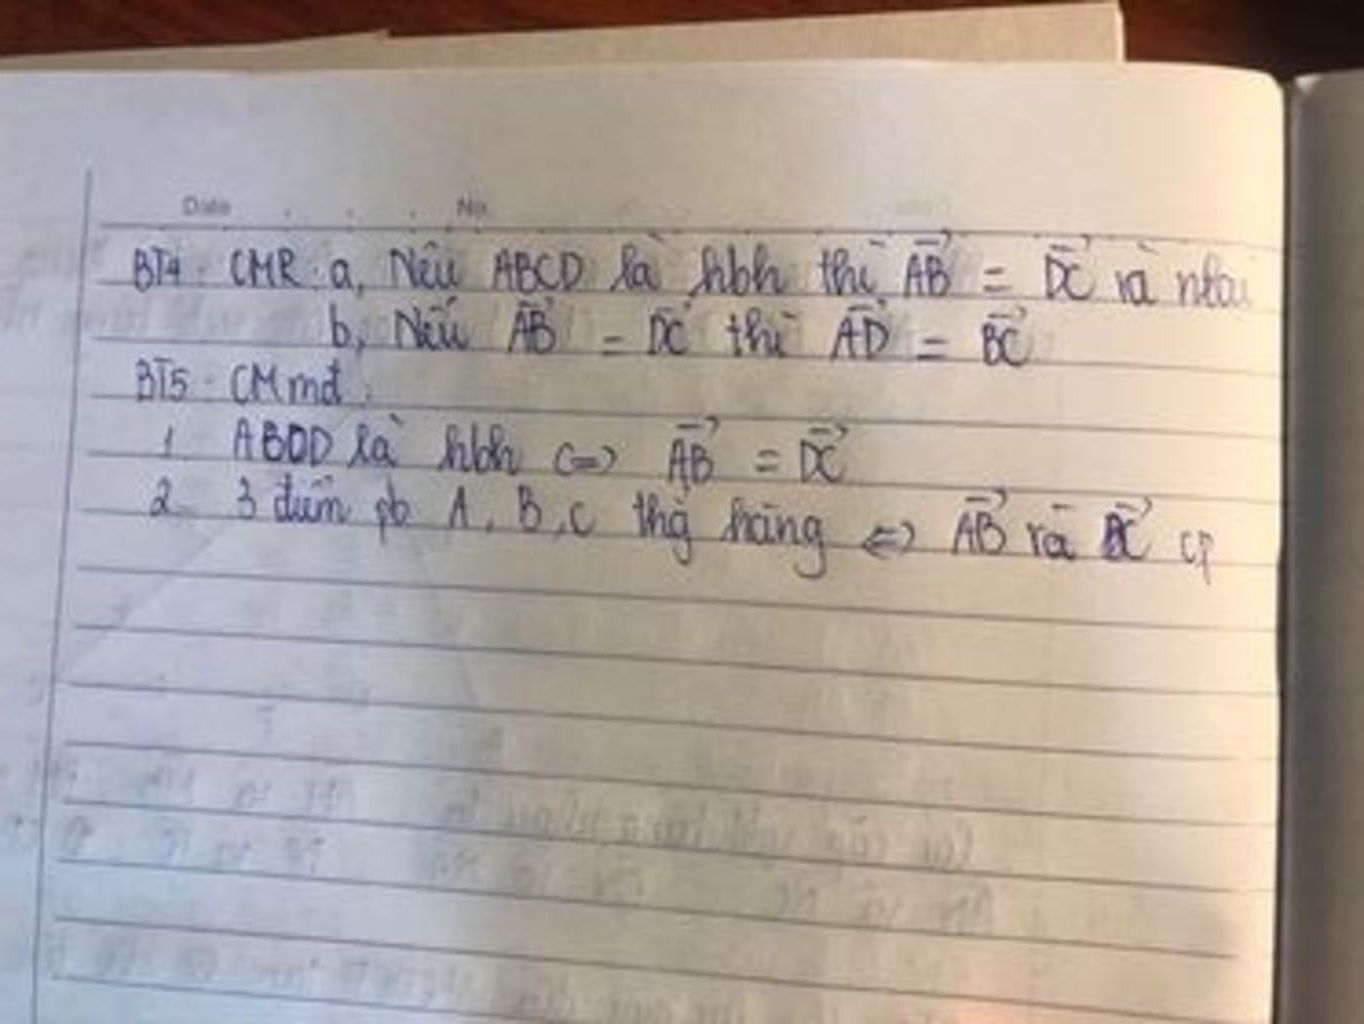 Date No.
BT4. CMR: a, Nếu ABCD là hbh thì AB⃗ = DC⃗ và
b, Nếu AB⃗ = DC⃗ thì AD⃗ = BC⃗
BT5. CM mđ:
1. ABCD là hbh <=> AB⃗ = DC⃗
2. 3 điểm pb A, B, C thg hàng <=> AB⃗ và BC⃗ cp